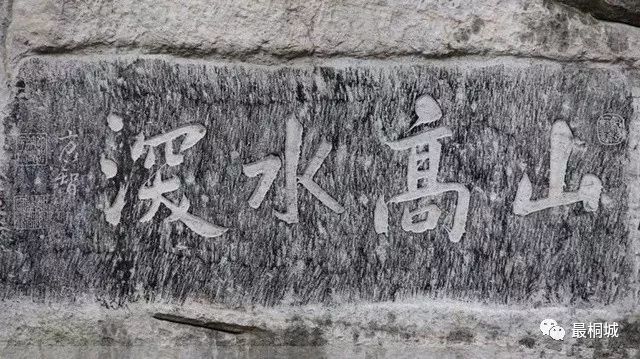 山高水深
方智
最桐城